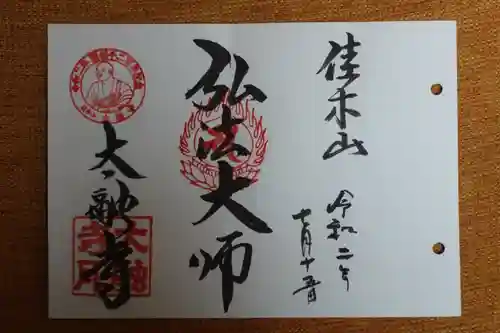 佳木山
令和二年
七月十五日
弘法大師
大融寺